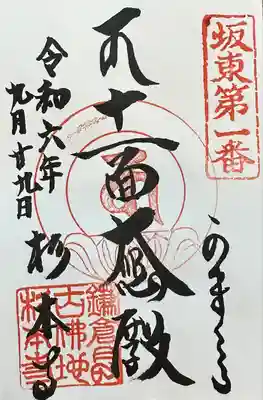 坂東第一番
かまくら
十一面大悲殿
杉本寺
令和六年
九月廿九日
鎌倉最
古佛地
杉本寺